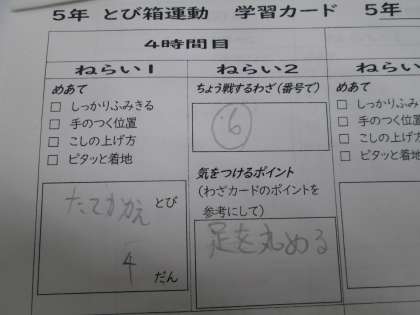 5年 とび箱運動 学習カード 5年
4時間目
ねらい1 ねらい2 ねらい
めあて
□ しっかりふみきる
□ 手のつく位置
□ こしの上げ方
□ ピタッと着地
ちょう戦するわざ(番号で)
⑥
気をつけるポイント
(わざカードのポイントを
参考にして)
足を丸める
たてかかえ とび
4 だん
めあて
□ しっかりふみ
□ 手のつく位置
□ こしの上げ方
□ ピタッと着地